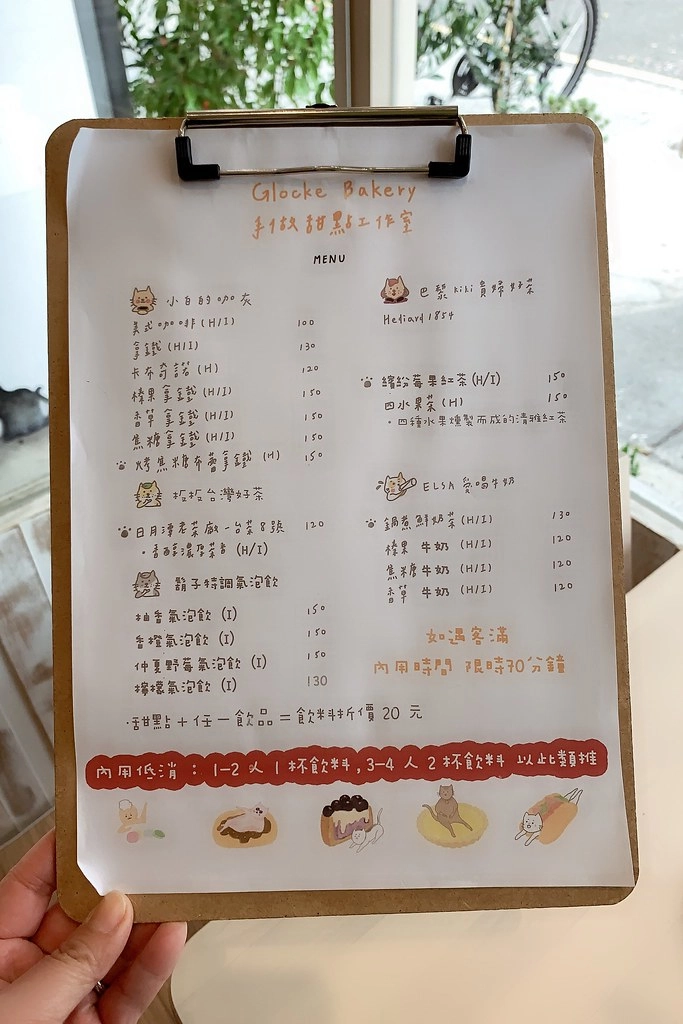 Glocke Bakery
手做甜點工作室
MENU
小白的咖灰
美式咖啡 (H/I) 100
拿鐵 (H/I) 130
卡布奇諾 (H) 120
榛果拿鐵 (H/I) 150
香草拿鐵 (H/I) 150
焦糖拿鐵 (H/I) 150
烤焦糖布蕾拿鐵 (H) 150
松松台灣好茶
日月潭老茶廠-台茶8號 120
·香醇濃厚茶香 (H/I)
鬍子特調氣泡飲
柚香氣泡飲 (I) 150
香橙氣泡飲 (I) 150
仲夏野莓氣泡飲 (I) 150
檸檬氣泡飲 (I) 130
巴黎kiki貴婦好茶
Hediard 1854
繽紛莓果紅茶 (H/I) 150
四水果茶 (H) 150
·四種水果燻製而成的清雅紅茶
ELSA 愛喝牛奶
鍋煮鮮奶茶 (H/I) 130
榛果 牛奶 (H/I) 120
焦糖 牛奶 (H/I) 120
香草 牛奶 (H/I) 120
如遇客滿
內用時間 限時70分鐘
·甜點+任一飲品=飲料折價 20 元
內用低消：1-2 人 1 杯飲料,3-4 人 2 杯飲料 以此類推